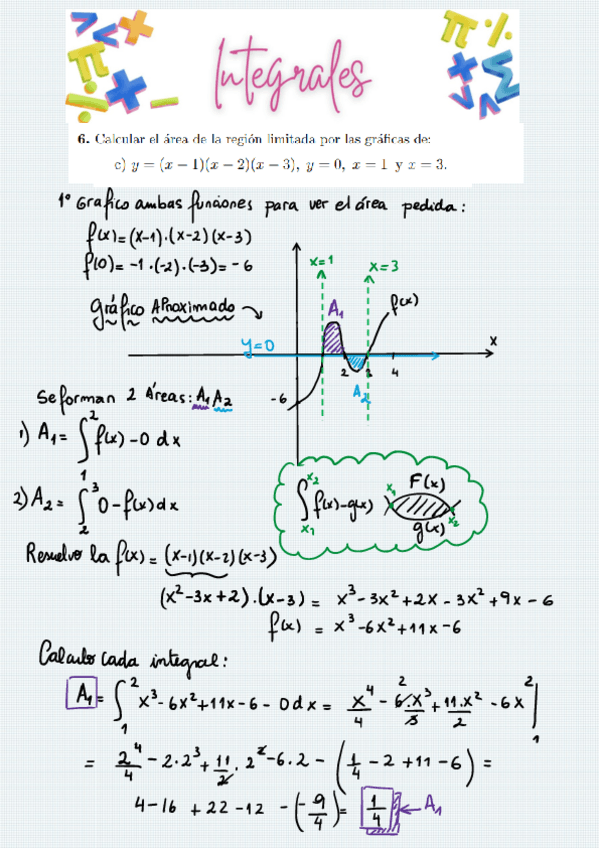 Integrales
6. Calcular el área de la región limitada por las gráficas de:
c) y = (x − 1)(x − 2)(x − 3), y = 0, x = 1 y x = 3.
1º Grafico ambas funciones para ver el área pedida:
f(x) = (x-1)·(x-2)(x-3)
f(0) = -1·(-2)·(-3) = -6
Gráfico Aproximado
x=1
x=3
f(x)
A₁
y=0
x
2 3 4
A₂
-6
Se forman 2 Áreas: A₁ A₂
1) A₁ = ∫₁² f(x) - 0 dx
2) A₂ = ∫₂³ 0 - f(x) dx
∫ₓ₁ˣ² f(x) - g(x)
F(x)
x₁
g(x)
x₂
Resuelvo la f(x) = (x-1)(x-2)(x-3)
(x²-3x+2)·(x-3) = x³-3x²+2x-3x²+9x-6
f(x) = x³-6x²+11x-6
Calculo cada integral:
A₁ = ∫₁² x³-6x²+11x-6-0dx = x⁴/4 - 6·x³/3 2 + 11·x²/2 - 6x |₁²
= 2⁴/4 - 2·2³ + 11/2·2² - 6·2 - (1/4 - 2 + 11 - 6) =
4-16 + 22-12 - (-9/4) = 1/4 ← A₁